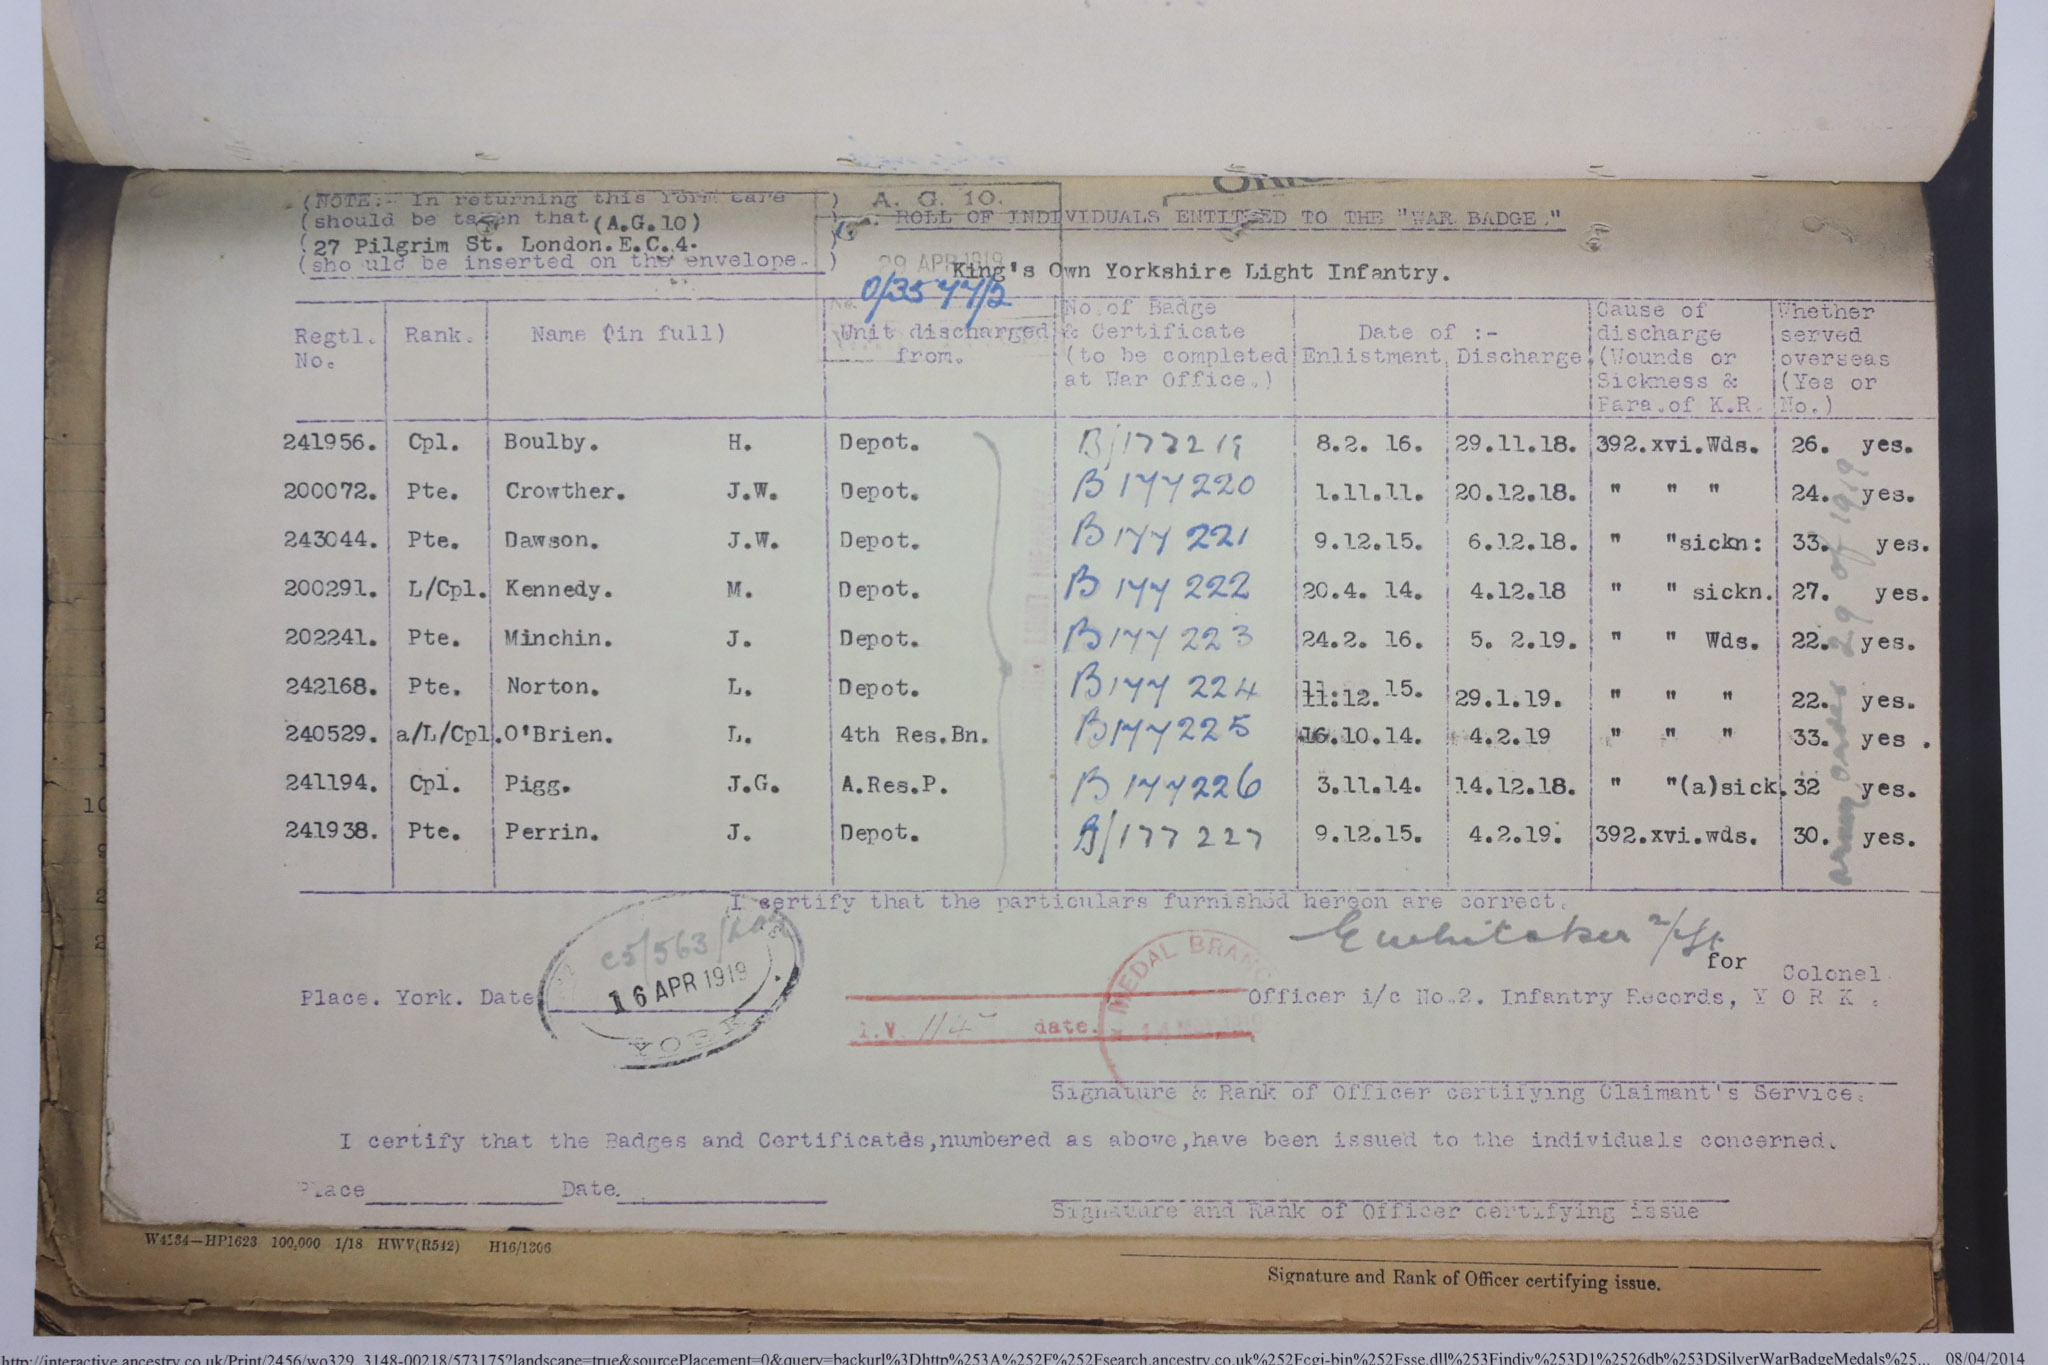 (NOTE:- In returning this form care )
(should be taken that (A.G.10) )
(27 Pilgrim St. London. E.C.4. )
(should be inserted on the envelope. )
A. G. 10.
29 APR 1919
No. 0/3577/2
ROLL OF INDIVIDUALS ENTITLED TO THE "WAR BADGE."
King's Own Yorkshire Light Infantry.
Regtl. No. Rank. Name (in full) Unit discharged from. No. of Badge & Certificate (to be completed at War Office.) Date of :- Enlistment, Discharge. Cause of discharge (Wounds or Sickness & Para. of K.R. Whether served overseas (Yes or No.)
241956. Cpl. Boulby. H. Depot. B/177219 8.2. 16. 29.11.18. 392.xvi.Wds. 26. yes.
200072. Pte. Crowther. J.W. Depot. B 177220 1.11.11. 20.12.18. " " " 24. yes.
243044. Pte. Dawson. J.W. Depot. B 177 221 9.12.15. 6.12.18. " "sickn: 33. yes.
200291. L/Cpl. Kennedy. M. Depot. B 177 222 20.4. 14. 4.12.18 " " sickn. 27. yes.
202241. Pte. Minchin. J. Depot. B 177 223 24.2. 16. 5. 2.19. " " Wds. 22. yes.
242168. Pte. Norton. L. Depot. B 177 224 11:12. 15. 29.1.19. " " " 22. yes.
240529. a/L/Cpl. O'Brien. L. 4th Res.Bn. B177225 16.10.14. 4.2.19 " " " 33. yes .
241194. Cpl. Pigg. J.G. A.Res.P. B 177226 3.11.14. 14.12.18. " "(a)sick. 32 yes.
241938. Pte. Perrin. J. Depot. B/177 227 9.12.15. 4.2.19. 392.xvi.wds. 30. yes.
29 of 1919
I certify that the particulars furnished hereon are correct.
E Whitaker 2/Lt.
for Colonel
Place. York. Date
C5/563/
16 APR 1919
YORK
I.V. date.
MEDAL BRANC
Officer i/c No.2. Infantry Records, Y O R K .
Signature & Rank of Officer certifying Claimant's Service.
I certify that the Badges and Certificates,numbered as above,have been issued to the individuals concerned.
Place Date.
Signature and Rank of Officer certifying issue
W4234—HP1623 100,000 1/18 HWV(R542) H16/1306
Signature and Rank of Officer certifying issue.
http://interactive.ancestry.co.uk/Print/2456/wo329_3148-00218/573175?landscape=true&sourcePlacement=0&query=backurl%3Dhttp%253A%252F%252Fsearch.ancestry.co.uk%252Fcgi-bin%252Fsse.dll%253Findiv%253D1%2526db%253DSilverWarBadgeMedals%25... 08/04/2014